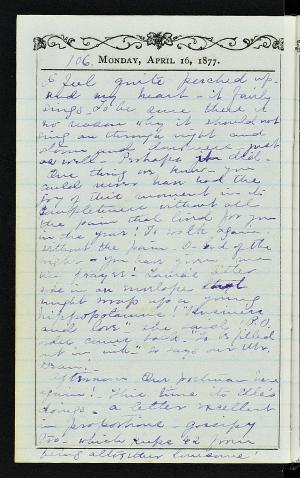 106.
MONDAY, APRIL 16, 1877.
I feel quite perched up -
and my heart - it fairly
sings. To be sure there is
no reason why it should not
sing on through night and
storm and darkness, just
as well - Perhaps it did.
One thing we know - you
could never have had the
joy of this moment in its
completeness without all
the pain that lived for you
in the year! To walk again -
without the pain -
You have given,
his prayer!
in an envelope that
might wrap up a young
hippopotamus! "Business
and love" she said. P.O.
order came back. To be filled
out in ink. So says our Mr.
Afternoon. Our postman here
again! This time to
a letter excellent
in proportions - gossipy
too - which keeps us from
being altogether lonesome!